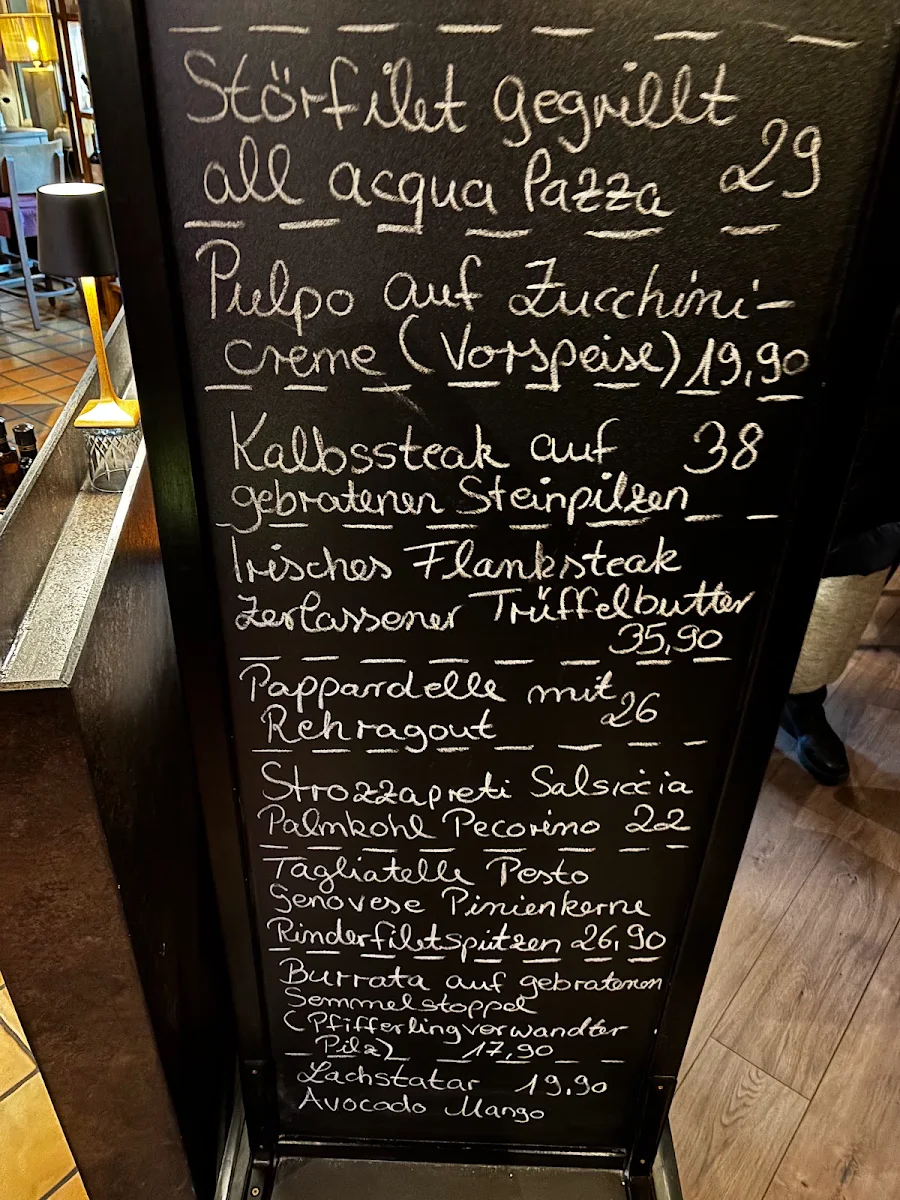 Störfilet gegrillt
all acqua Pazza 29
Pulpo auf Zucchini-
creme (Vorspeise) 19,90
Kalbssteak auf 38
gebratenen Steinpilzen
Irisches Flanksteak
Zerlassener Trüffelbutter
35,90
Pappardelle mit 26
Rehragout
Strozzapreti Salsiccia
Palmkohl Pecorino 22
Tagliatelle Pesto
Genovese Pinienkerne
Rinderfiletspitzen 26,90
Burrata auf gebratenen
Semmelstoppel
(Pfifferlingverwandter
Pilz) 17,90
Lachstatar 19,90
Avocado Mango